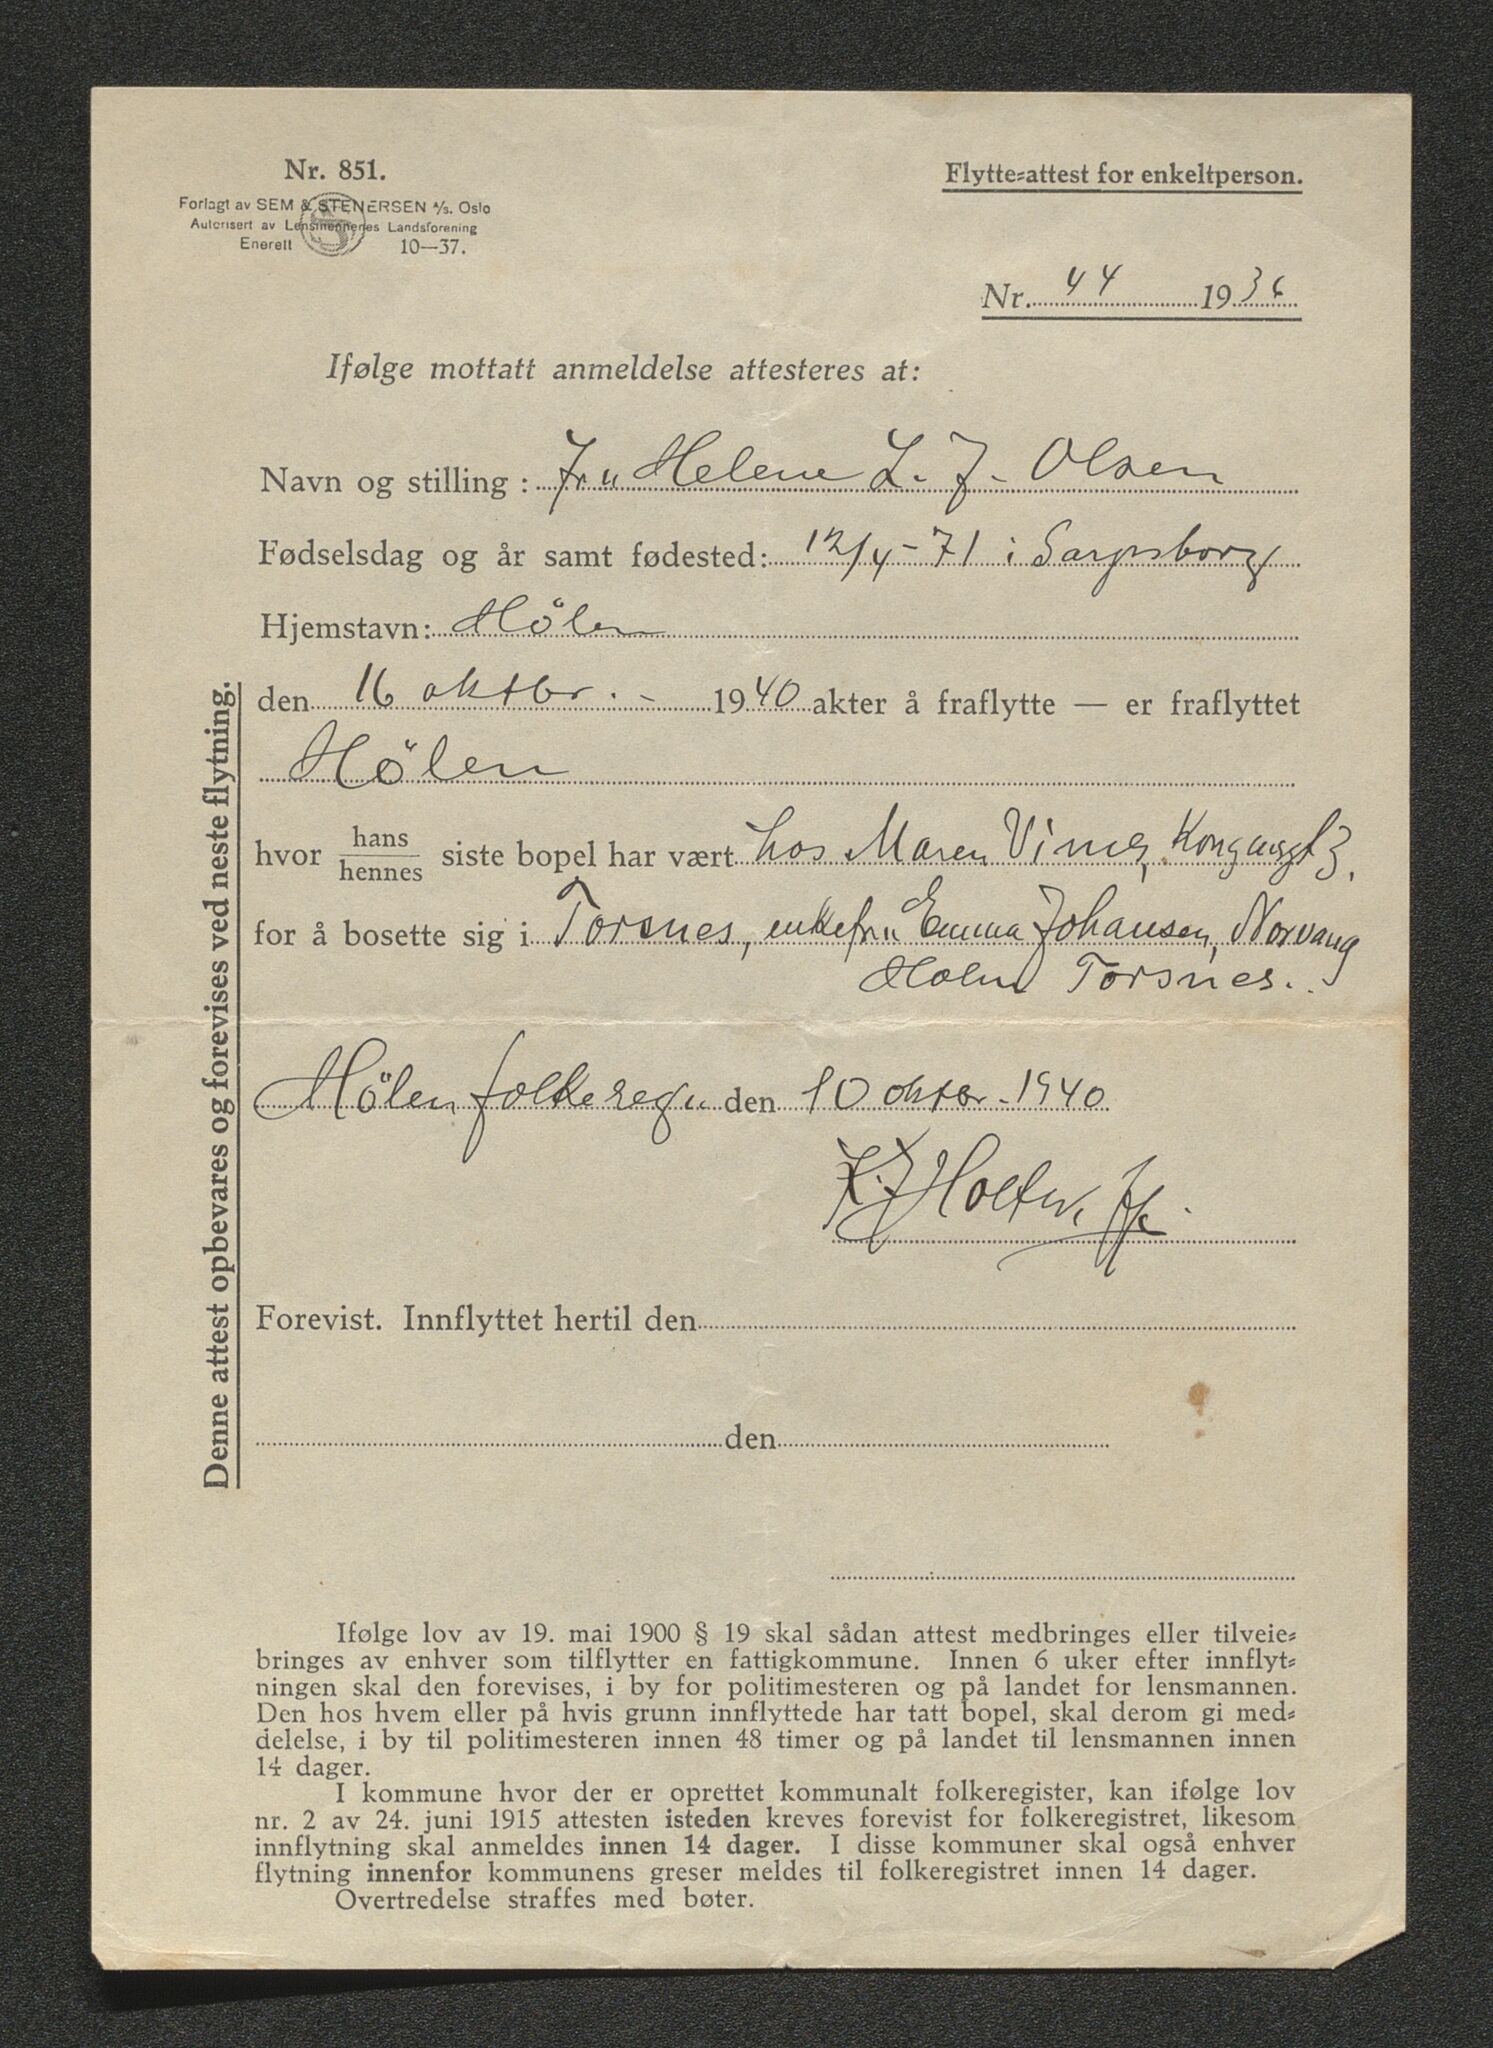 Nr. 851.
Forlagt av SEM & STENERSEN A/S. Oslo
Autorisert av Lensmennenes Landsforening
Enerett 10—37.
Flytte-attest for enkeltperson.
Nr. 44 1936
Ifølge mottatt anmeldelse attesteres at:
Navn og stilling: Fru Helene L. J. Olsen
Fødselsdag og år samt fødested: 12/4-71 i Sarpsborg
Hjemstavn: Hölen
den 16 oktbr. - 1940 akter å fraflytte — er fraflyttet
Hölen
hvor hans/hennes siste bopel har vært hos Maren Vines,
for å bosette sig i Torsnes, enkefru Emma Johansen, Norvang
Holm Torsnes.
Hölen folkereg. den 10 oktbr. 1940
Holter
Forevist. Innflyttet hertil den
den
Denne attest opbevares og forevises ved neste flytning.
Ifølge lov av 19. mai 1900 § 19 skal sådan attest medbringes eller tilveie-
bringes av enhver som tilflytter en fattigkommune. Innen 6 uker efter innflyt-
ningen skal den forevises, i by for politimesteren og på landet for lensmannen.
Den hos hvem eller på hvis grunn innflyttede har tatt bopel, skal derom gi med-
delelse, i by til politimesteren innen 48 timer og på landet til lensmannen innen
14 dager.
I kommune hvor der er oprettet kommunalt folkeregister, kan ifølge lov
nr. 2 av 24. juni 1915 attesten isteden kreves forevist for folkeregistret, likesom
innflytning skal anmeldes innen 14 dager. I disse kommuner skal også enhver
flytning innenfor kommunens greser meldes til folkeregistret innen 14 dager.
Overtredelse straffes med bøter.